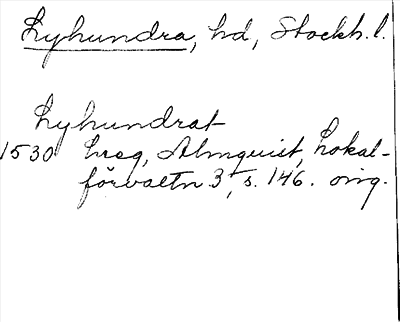 Lyhundra, hd, Stockh. l.
Lyhundrat
1530 hreg, Almquist, Lokal-
förvaltn 3, s. 146. orig.